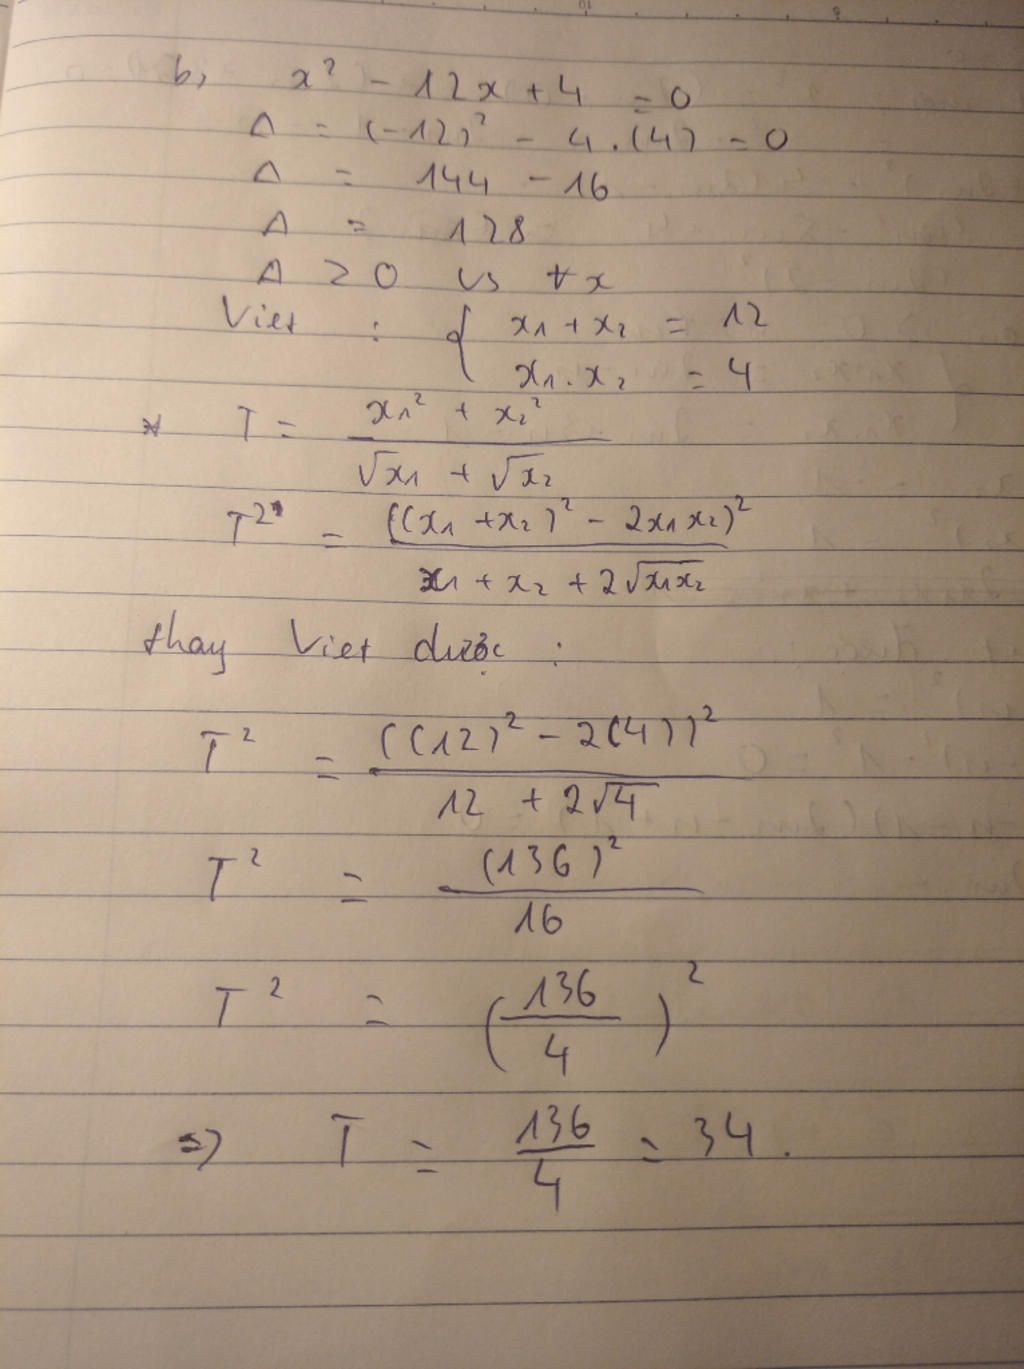 b, x² - 12x + 4 = 0
Δ = (-12)² - 4.(4) = 0
Δ = 144 - 16
Δ = 128
Δ > 0 vs ∀x
Viet : { x₁ + x₂ = 12
x₁.x₂ = 4
* T = (x₁² + x₂²) / (√x₁ + √x₂)
T² = ((x₁ + x₂)² - 2x₁x₂)² / (x₁ + x₂ + 2√x₁x₂)
thay Viet được :
T² = ((12)² - 2(4))² / (12 + 2√4)
T² = (136)² / 16
T² = (136/4)²
=> T = 136/4 = 34.